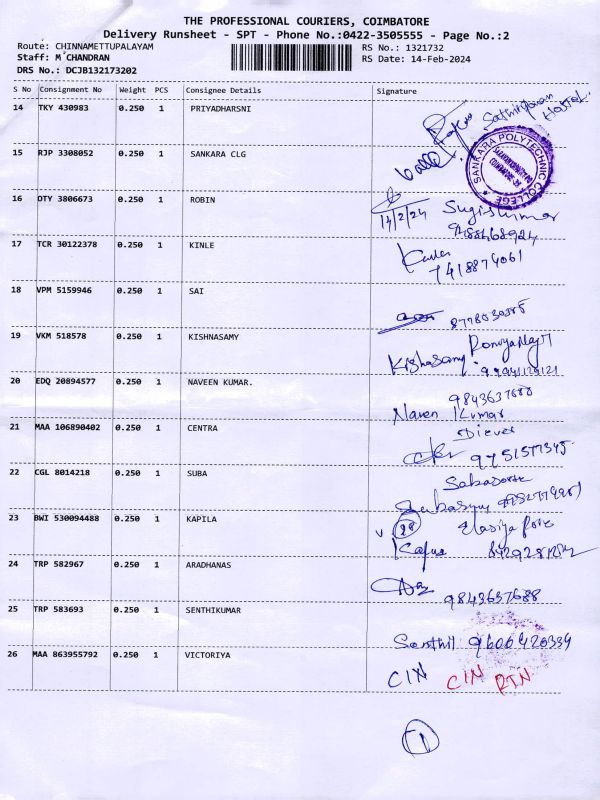 THE PROFESSIONAL COURIERS, COIMBATORE
Delivery Runsheet - SPT - Phone No.:0422-3505555 - Page No.:2
Route: CHINNAMETTUPALAYAM RS No.: 1321732
Staff: M CHANDRAN RS Date: 14-Feb-2024
DRS No.: DCJB132173202
S No Consignment No Weight PCS Consignee Details Signature
14 TKY 430983 0.250 1 PRIYADHARSNI
Hostel
15 RJP 3308052 0.250 1 SANKARA CLG
SANKARA POLYTECHNIC COLLEGE
16 OTY 3806673 0.250 1 ROBIN
14/2/24
17 TCR 30122378 0.250 1 KINLE
7418874061
18 VPM 5159946 0.250 1 SAI
19 VKM 518578 0.250 1 KISHNASAMY
Kishasamy
20 EDQ 20894577 0.250 1 NAVEEN KUMAR.
9843637688
Naven Kumar
21 MAA 106890402 0.250 1 CENTRA
9751577345
22 CGL 8014218 0.250 1 SUBA
23 BWI 530094488 0.250 1 KAPILA
28
24 TRP 582967 0.250 1 ARADHANAS
9843637688
25 TRP 583693 0.250 1 SENTHIKUMAR
Senthil 9600420339
26 MAA 863955792 0.250 1 VICTORIYA
CIN CIN RTN
1